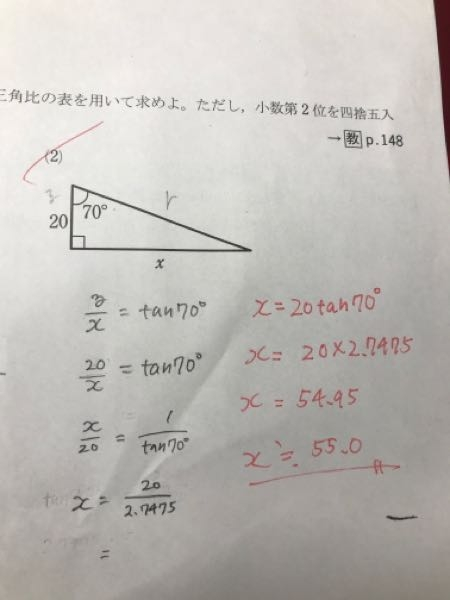 三角比の表を用いて求めよ。ただし,小数第2位を四捨五入
→教 p.148
(2)
20
70°
r
x
x = tan70°
20/x = tan70°
x/20 = 1/tan70°
x = 20/2.7475
=
x = 20tan70°
x = 20×2.7475
x = 54.95
x ≒ 55.0